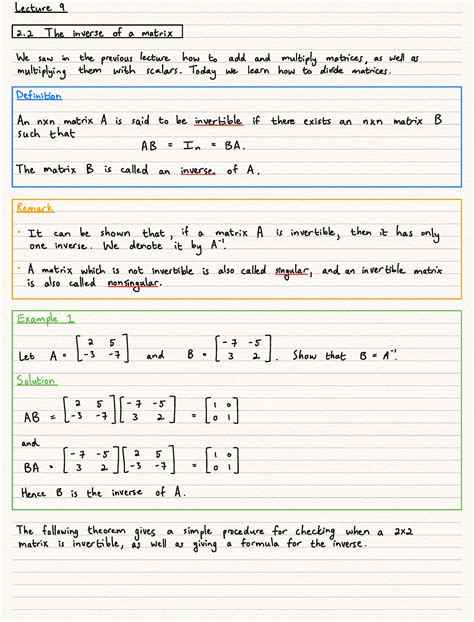 Lecture 9
2.2 The inverse of a matrix
We saw in the previous lecture how to add and multiply matrices, as well as
multiplying them with scalars. Today we learn how to divide matrices.
Definition
An nxn matrix A is said to be invertible if there exists an nxn matrix B
such that
AB = Iₙ = BA.
The matrix B is called an inverse of A.
Remark
• It can be shown that, if a matrix A is invertible, then it has only
one inverse. We denote it by A⁻¹.
• A matrix which is not invertible is also called singular, and an invertible matrix
is also called nonsingular.
Example 1
Let A = [2 5; -3 -7] and B = [-7 -5; 3 2]. Show that B = A⁻¹.
Solution
AB = [2 5; -3 -7] [-7 -5; 3 2] = [1 0; 0 1]
and
BA = [-7 -5; 3 2] [2 5; -3 -7] = [1 0; 0 1]
Hence B is the inverse of A.
The following theorem gives a simple procedure for checking when a 2x2
matrix is invertible, as well as giving a formula for the inverse.